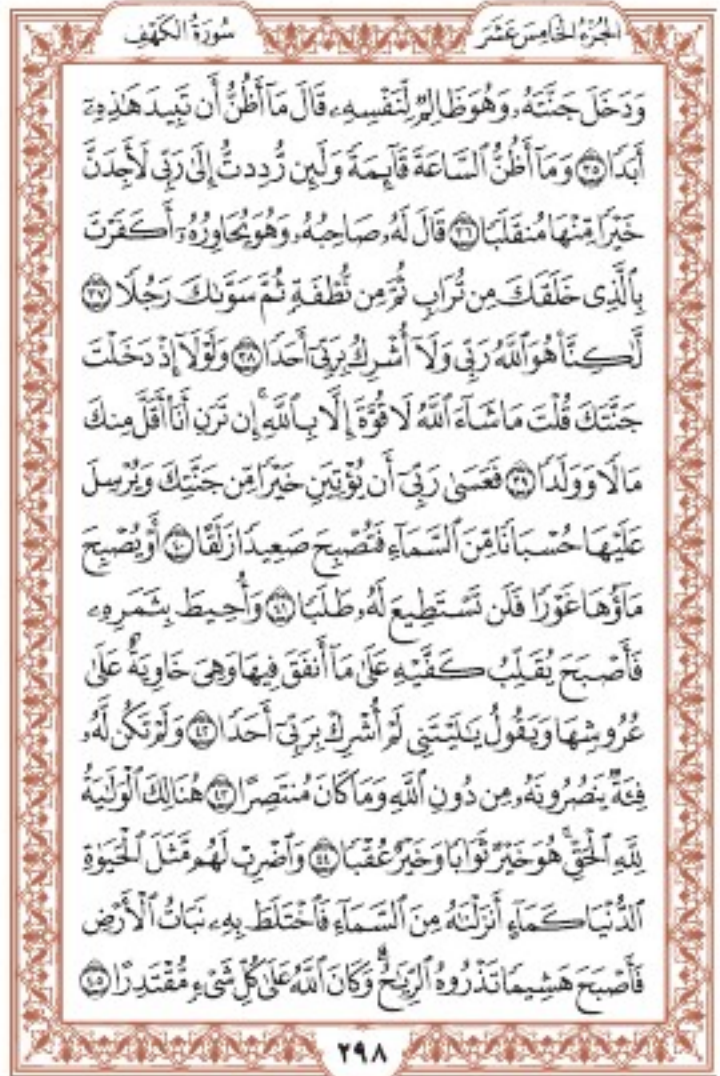 الجُزْءُ الخَامِسَ عَشَرَ
سُورَةُ الكَهْفِ
وَدَخَلَ جَنَّتَهُۥ وَهُوَ ظَالِمٌ لِّنَفْسِهِۦ قَالَ مَآ أَظُنُّ أَن تَبِيدَ هَٰذِهِۦٓ
أَبَدًا ٣٥ وَمَآ أَظُنُّ ٱلسَّاعَةَ قَآئِمَةً وَلَئِن رُّدِدتُّ إِلَىٰ رَبِّى لَأَجِدَنَّ
خَيْرًا مِّنْهَا مُنقَلَبًا ٣٦ قَالَ لَهُۥ صَاحِبُهُۥ وَهُوَ يُحَاوِرُهُۥٓ أَكَفَرْتَ
بِٱلَّذِى خَلَقَكَ مِن تُرَابٍ ثُمَّ مِن نُّطْفَةٍ ثُمَّ سَوَّىٰكَ رَجُلًا ٣٧
لَّٰكِنَّا۠ هُوَ ٱللَّهُ رَبِّى وَلَآ أُشْرِكُ بِرَبِّىٓ أَحَدًا ٣٨ وَلَوْلَآ إِذْ دَخَلْتَ
جَنَّتَكَ قُلْتَ مَا شَآءَ ٱللَّهُ لَا قُوَّةَ إِلَّا بِٱللَّهِۚ إِن تَرَنِ أَنَا۠ أَقَلَّ مِنكَ
مَالًا وَوَلَدًا ٣٩ فَعَسَىٰ رَبِّىٓ أَن يُؤْتِيَنِ خَيْرًا مِّن جَنَّتِكَ وَيُرْسِلَ
عَلَيْهَا حُسْبَانًا مِّنَ ٱلسَّمَآءِ فَتُصْبِحَ صَعِيدًا زَلَقًا ٤٠ أَوْ يُصْبِحَ
مَآؤُهَا غَوْرًا فَلَن تَسْتَطِيعَ لَهُۥ طَلَبًا ٤١ وَأُحِيطَ بِثَمَرِهِۦ
فَأَصْبَحَ يُقَلِّبُ كَفَّيْهِ عَلَىٰ مَآ أَنفَقَ فِيهَا وَهِىَ خَاوِيَةٌ عَلَىٰ
عُرُوشِهَا وَيَقُولُ يَٰلَيْتَنِى لَمْ أُشْرِكْ بِرَبِّىٓ أَحَدًا ٤٢ وَلَمْ تَكُن لَّهُۥ
فِئَةٌ يَنصُرُونَهُۥ مِن دُونِ ٱللَّهِ وَمَا كَانَ مُنتَصِرًا ٤٣ هُنَالِكَ ٱلْوَلَٰيَةُ
لِلَّهِ ٱلْحَقِّۚ هُوَ خَيْرٌ ثَوَابًا وَخَيْرٌ عُقْبًا ٤٤ وَٱضْرِبْ لَهُم مَّثَلَ ٱلْحَيَوٰةِ
ٱلدُّنْيَا كَمَآءٍ أَنزَلْنَٰهُ مِنَ ٱلسَّمَآءِ فَٱخْتَلَطَ بِهِۦ نَبَاتُ ٱلْأَرْضِ
فَأَصْبَحَ هَشِيمًا تَذْرُوهُ ٱلرِّيَٰحُۗ وَكَانَ ٱللَّهُ عَلَىٰ كُلِّ شَىْءٍ مُّقْتَدِرًا ٤٥
٢٩٨